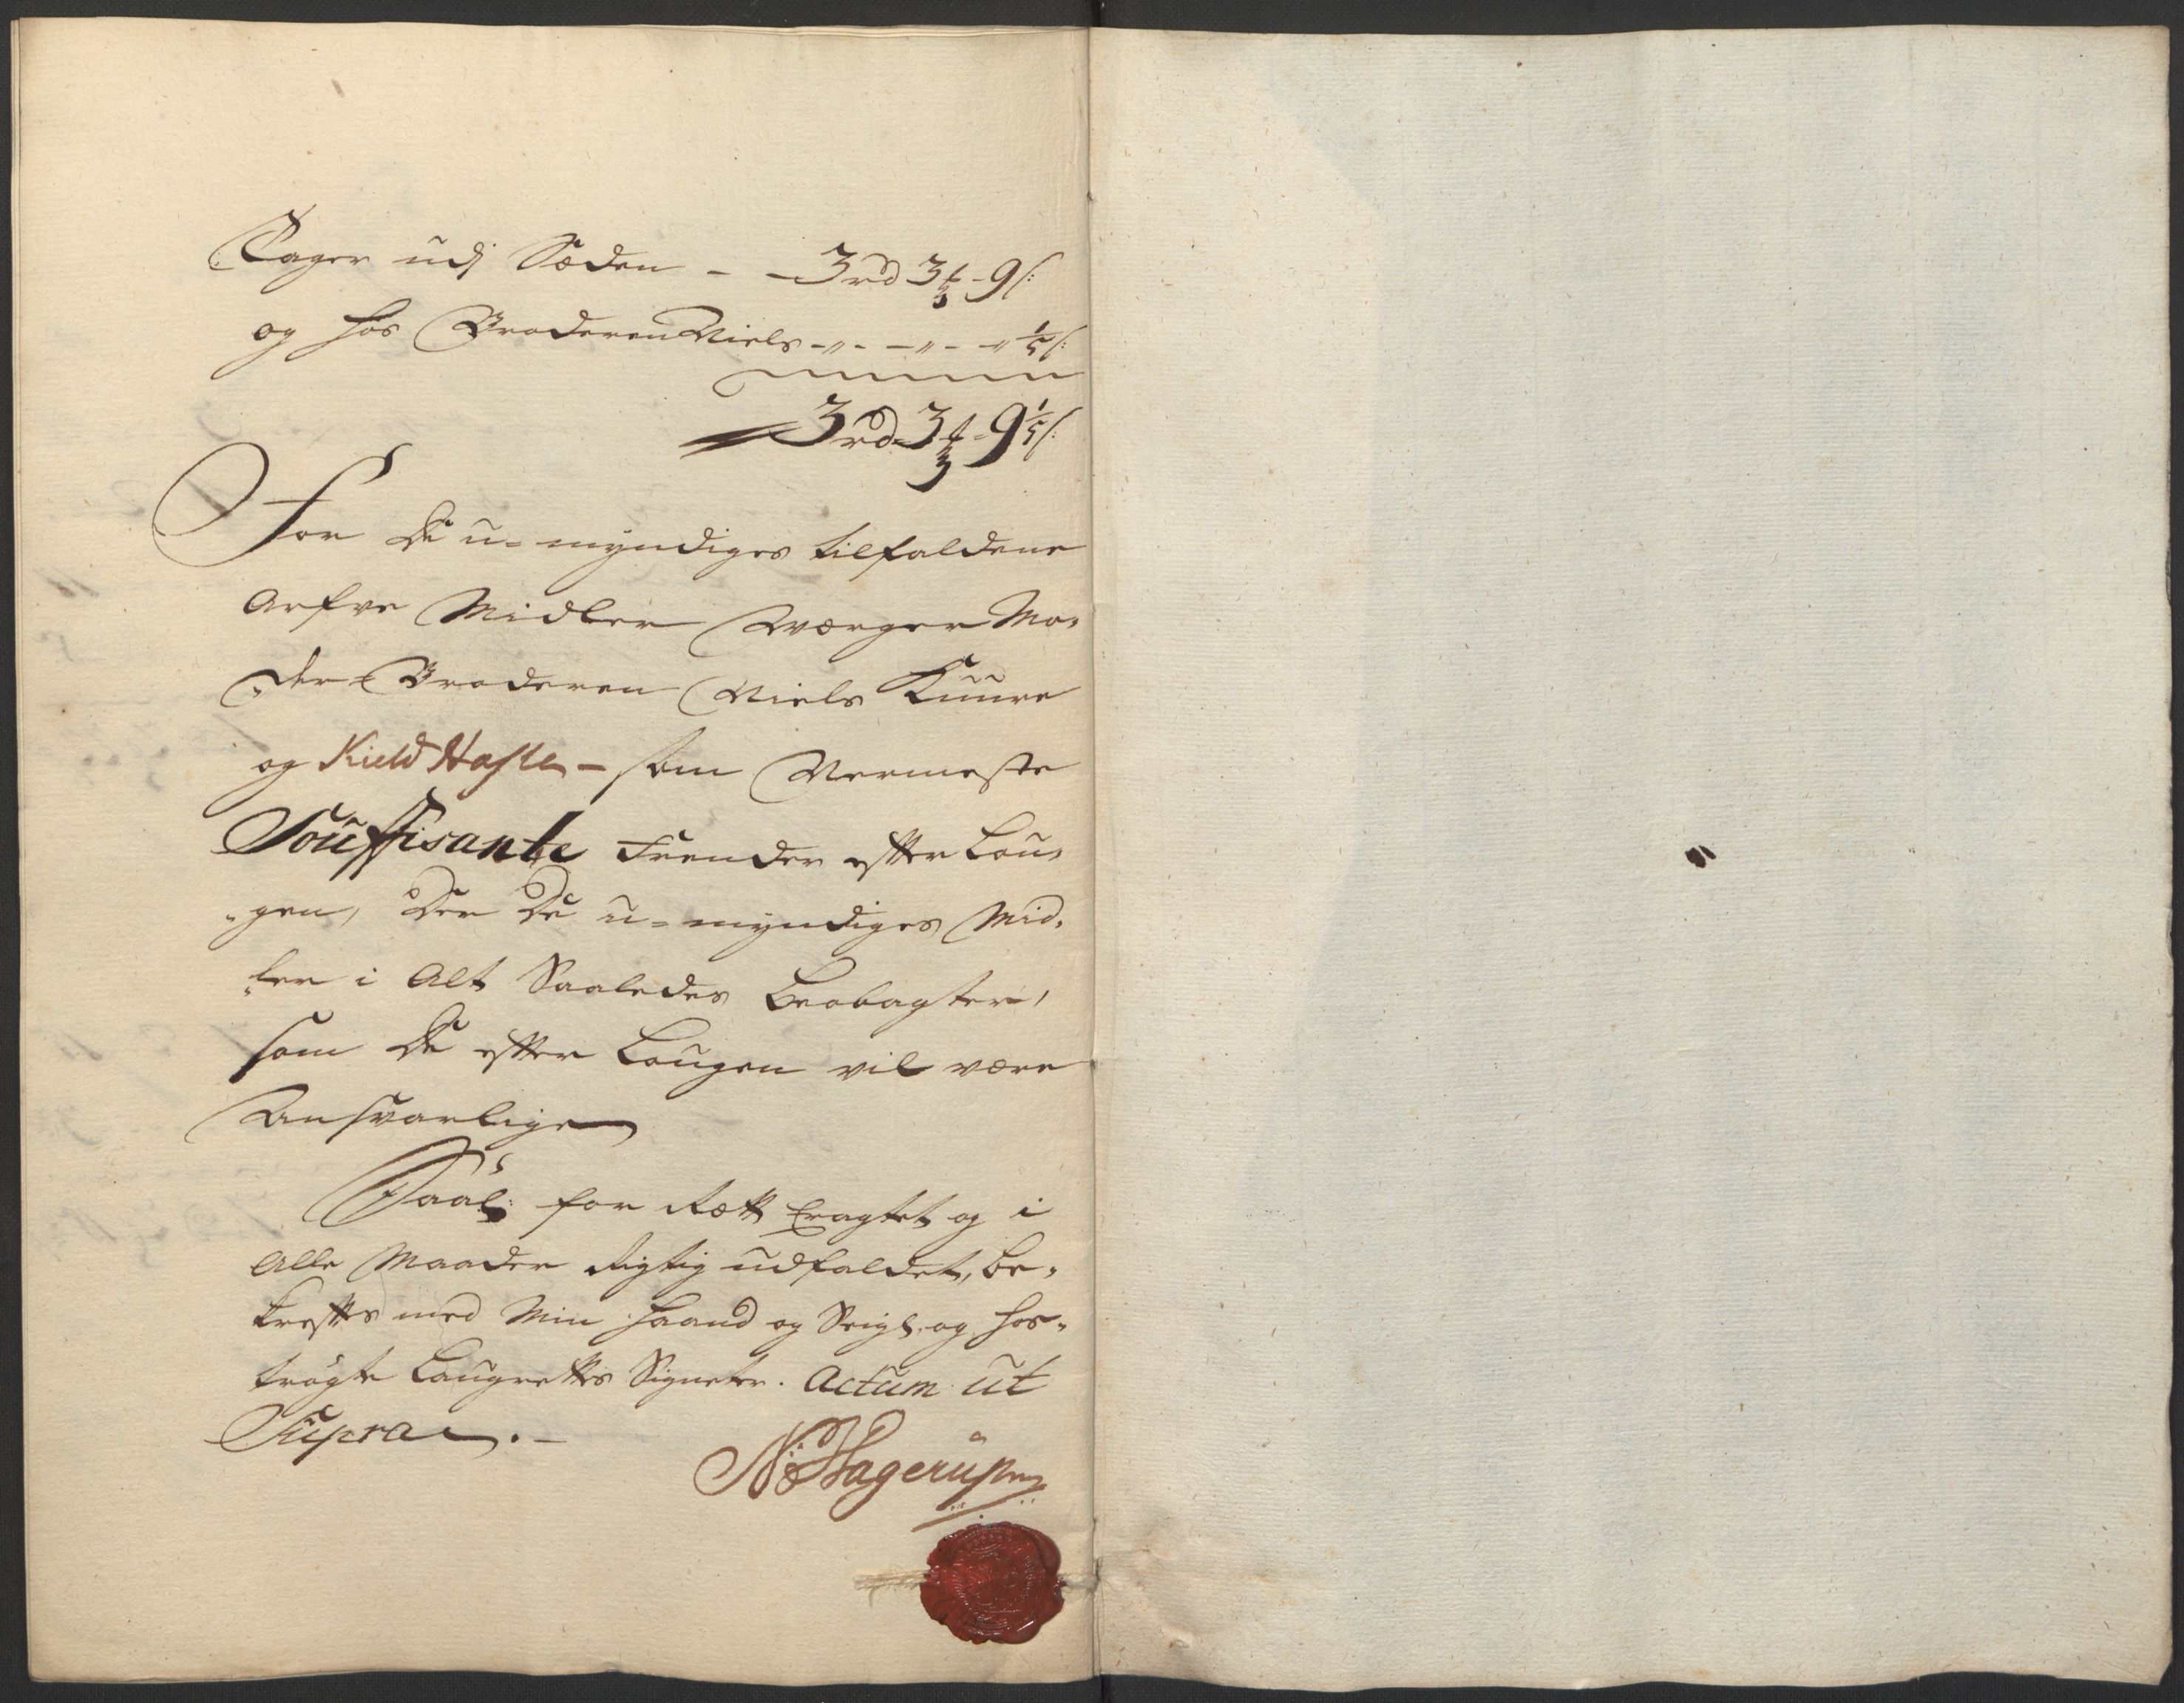 Tager udj Sæden - - 3 rd 3 ₰ - 9 s:
og hos Broderen Niels - " - - " - - " 1/5 s:
3 rd - 3 ₰ - 9 1/5 s:
For de u-myndiges tilfaldene
Arfve Midler Værger Mo-
der-Broderen Niels Kuure
og Kield - som Nermeste
Souffisante Frender efter Lou-
gen, der de u-myndiges Mid-
ler i Alt Saaledes Beobagter,
som de efter Lougen vil være
Ansvarlige
Saal: for Rætt Eragtet og i
Alle Maader Rigtig udfaldet, be-
kreftes med Min Haand og Seigl. og hos-
trögte Laugrettes Signeter. Actum ut
Supra. -
Hagerup